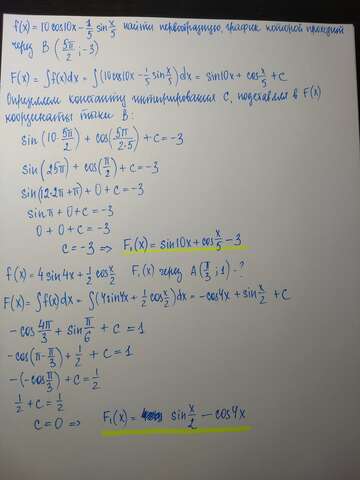 f(x)=10cos10x-1/5 sin x/5 найти первообразную, график которой проходит
через B (5π/2; -3)
F(x)=∫f(x)dx=∫(10cos10x-1/5 sin x/5)dx=sin10x+cos x/5+C
Определяем константу интегрирования C, подставляя в F(x)
координаты точки B:
sin(10·5π/2)+cos(5π/2·5)+C=-3
sin(25π)+cos(π/2)+C=-3
sin(12·2π+π)+0+C=-3
sinπ+0+C=-3
0+0+C=-3
C=-3 => F₁(x)=sin10x+cos x/5-3
f(x)=4sin4x+1/2 cos x/2 F₁(x) через A(π/3;1)-?
F(x)=∫f(x)dx=∫(4sin4x+1/2 cos x/2)dx=-cos4x+sin x/2+C
-cos 4π/3+sin π/6+C=1
-cos(π-π/3)+1/2+C=1
-(-cos π/3)+C=1/2
1/2+C=1/2
C=0 => F₁(x)= sin x/2-cos4x